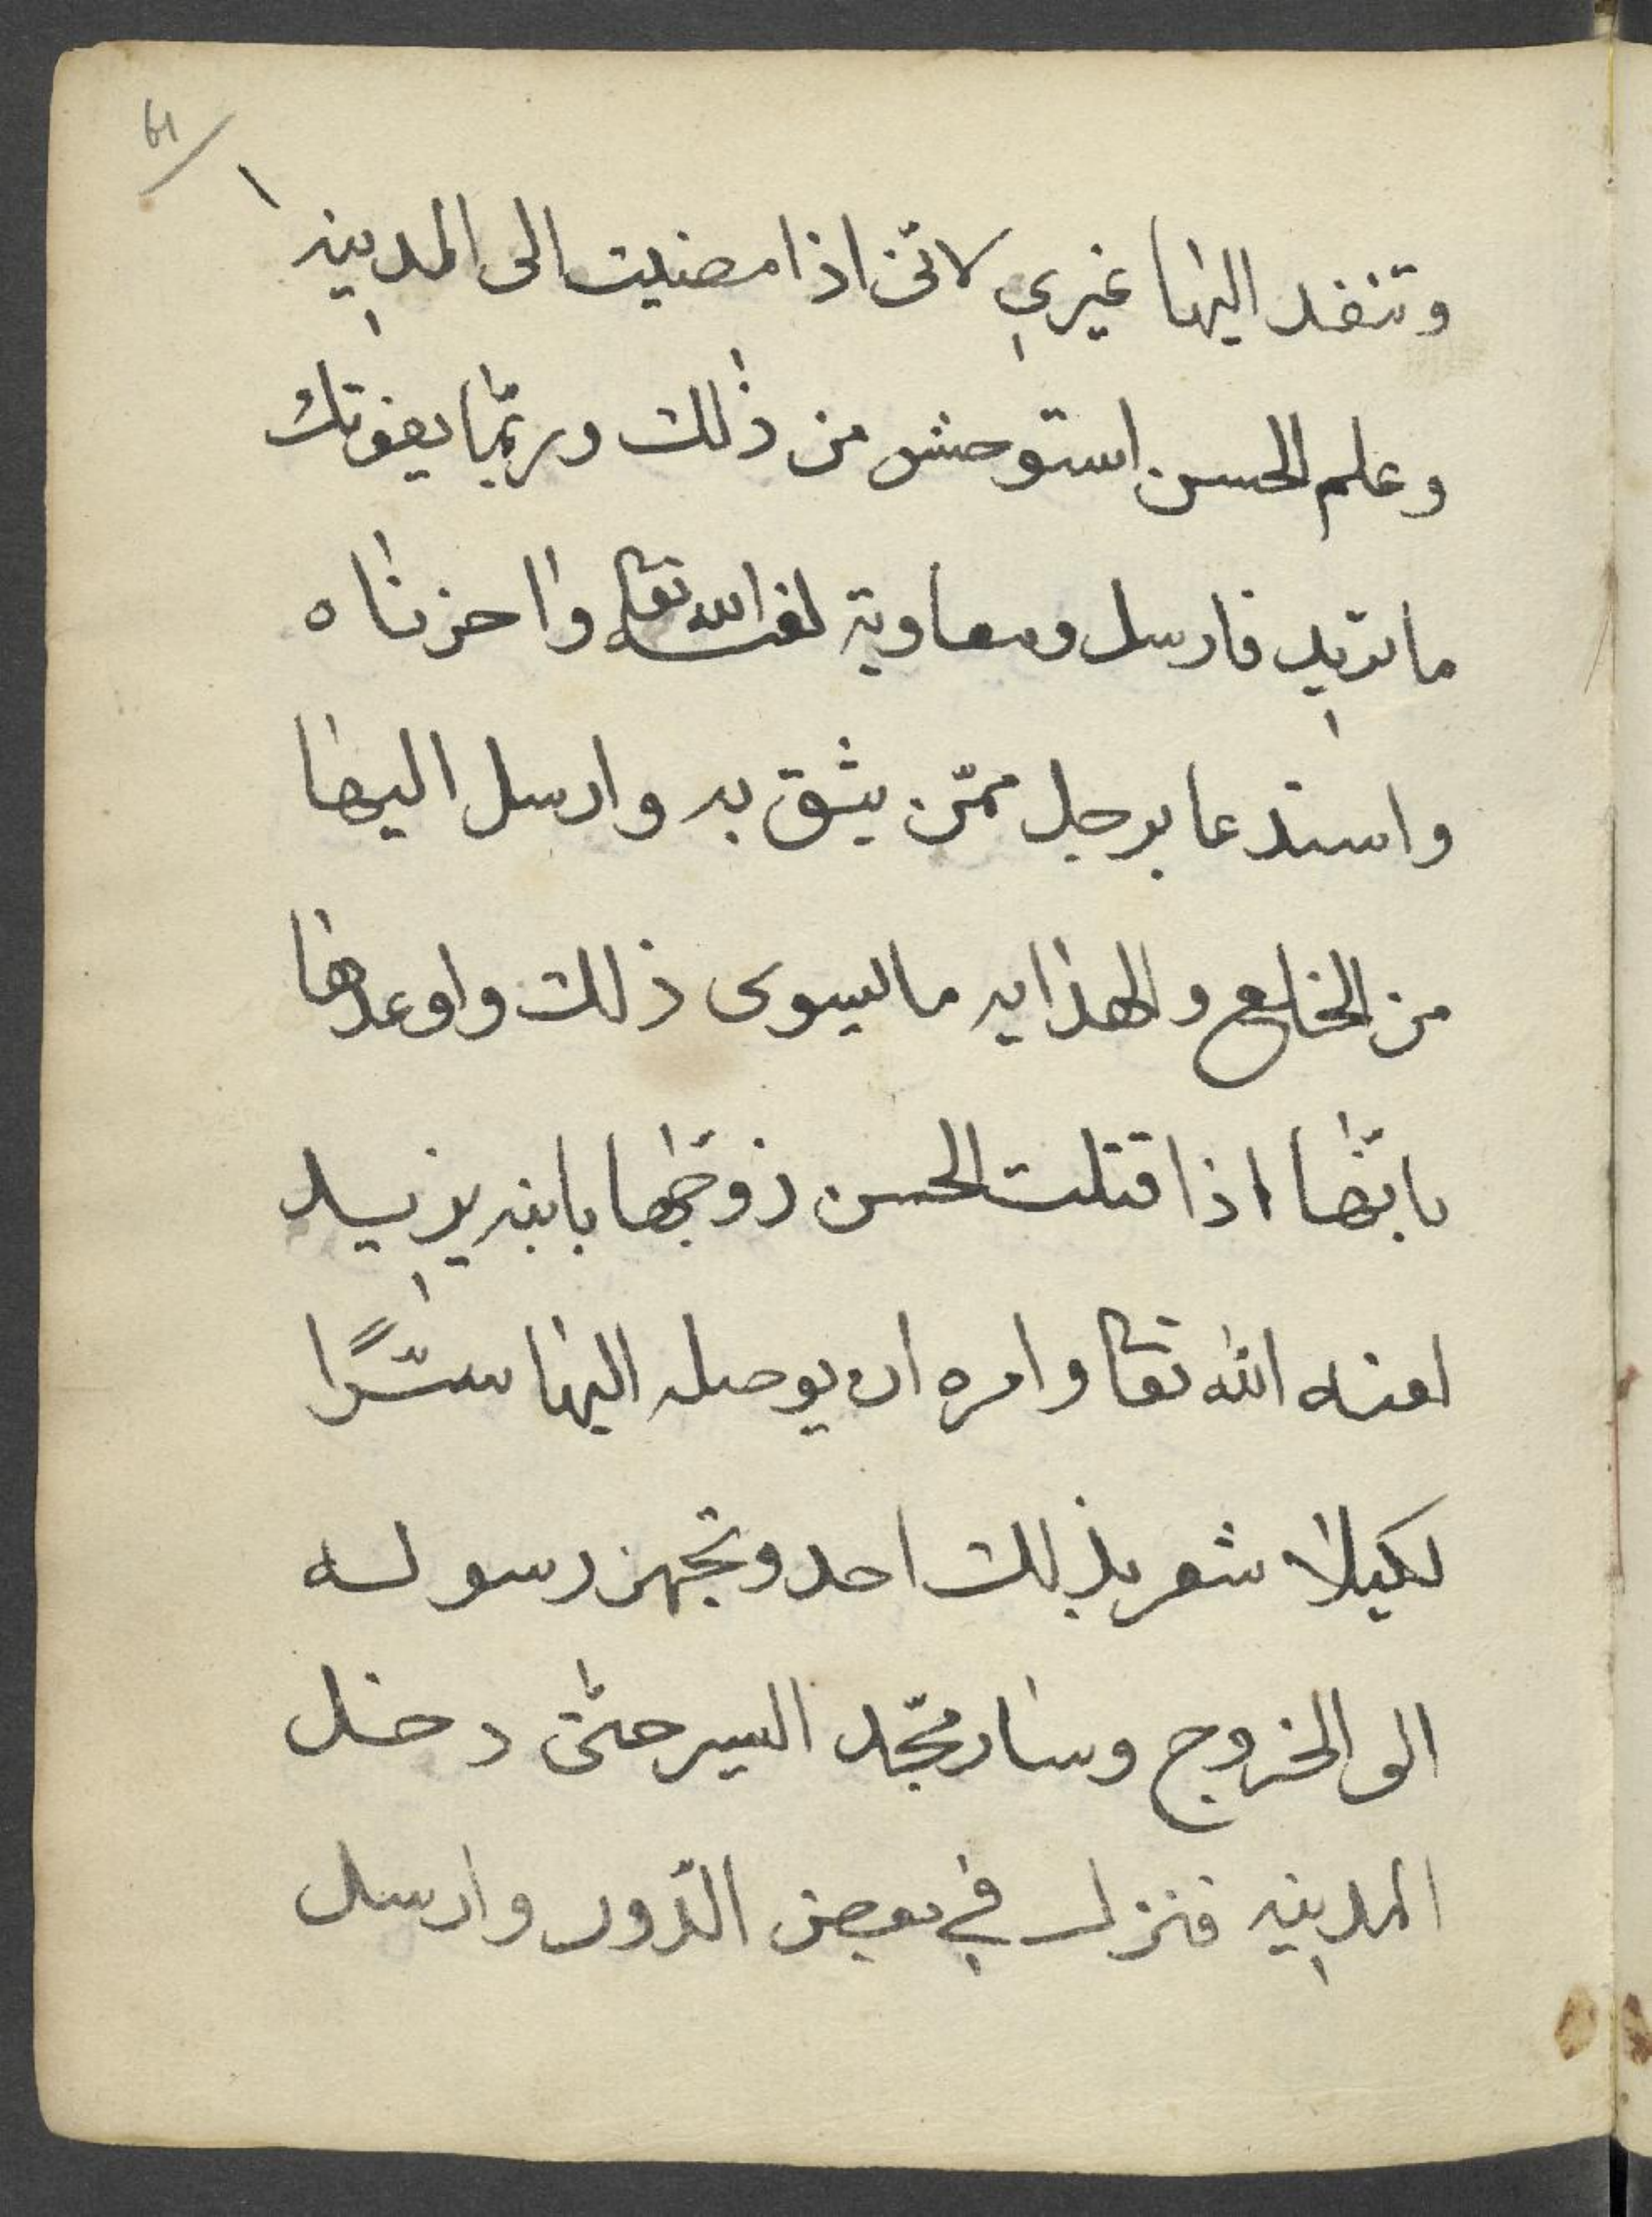 61
وتنفد اليها غيري لانّى اذا مضيت الى المدينه
وعلم الحسن استوحش من ذلك وربّما يفوتك
ما تريد فارسل ومعاوية لعنه الله تعا واحزناه
واستدعا برجل ممّن يثق به وارسل اليها
من الخلع والهدايه ما ليسوى ذلك واوعدها
بانّها اذا قتلت الحسن زوّجها بابنه يزيد
لعنه الله تعا وامره ان يوصله اليها سرًّا
لكيلا شعر بذلك احد وتجهز رسوله
الى الخروج وسار مجّد السير حتّى دخل
المدينه فنزل في بعض الدّور وارسل